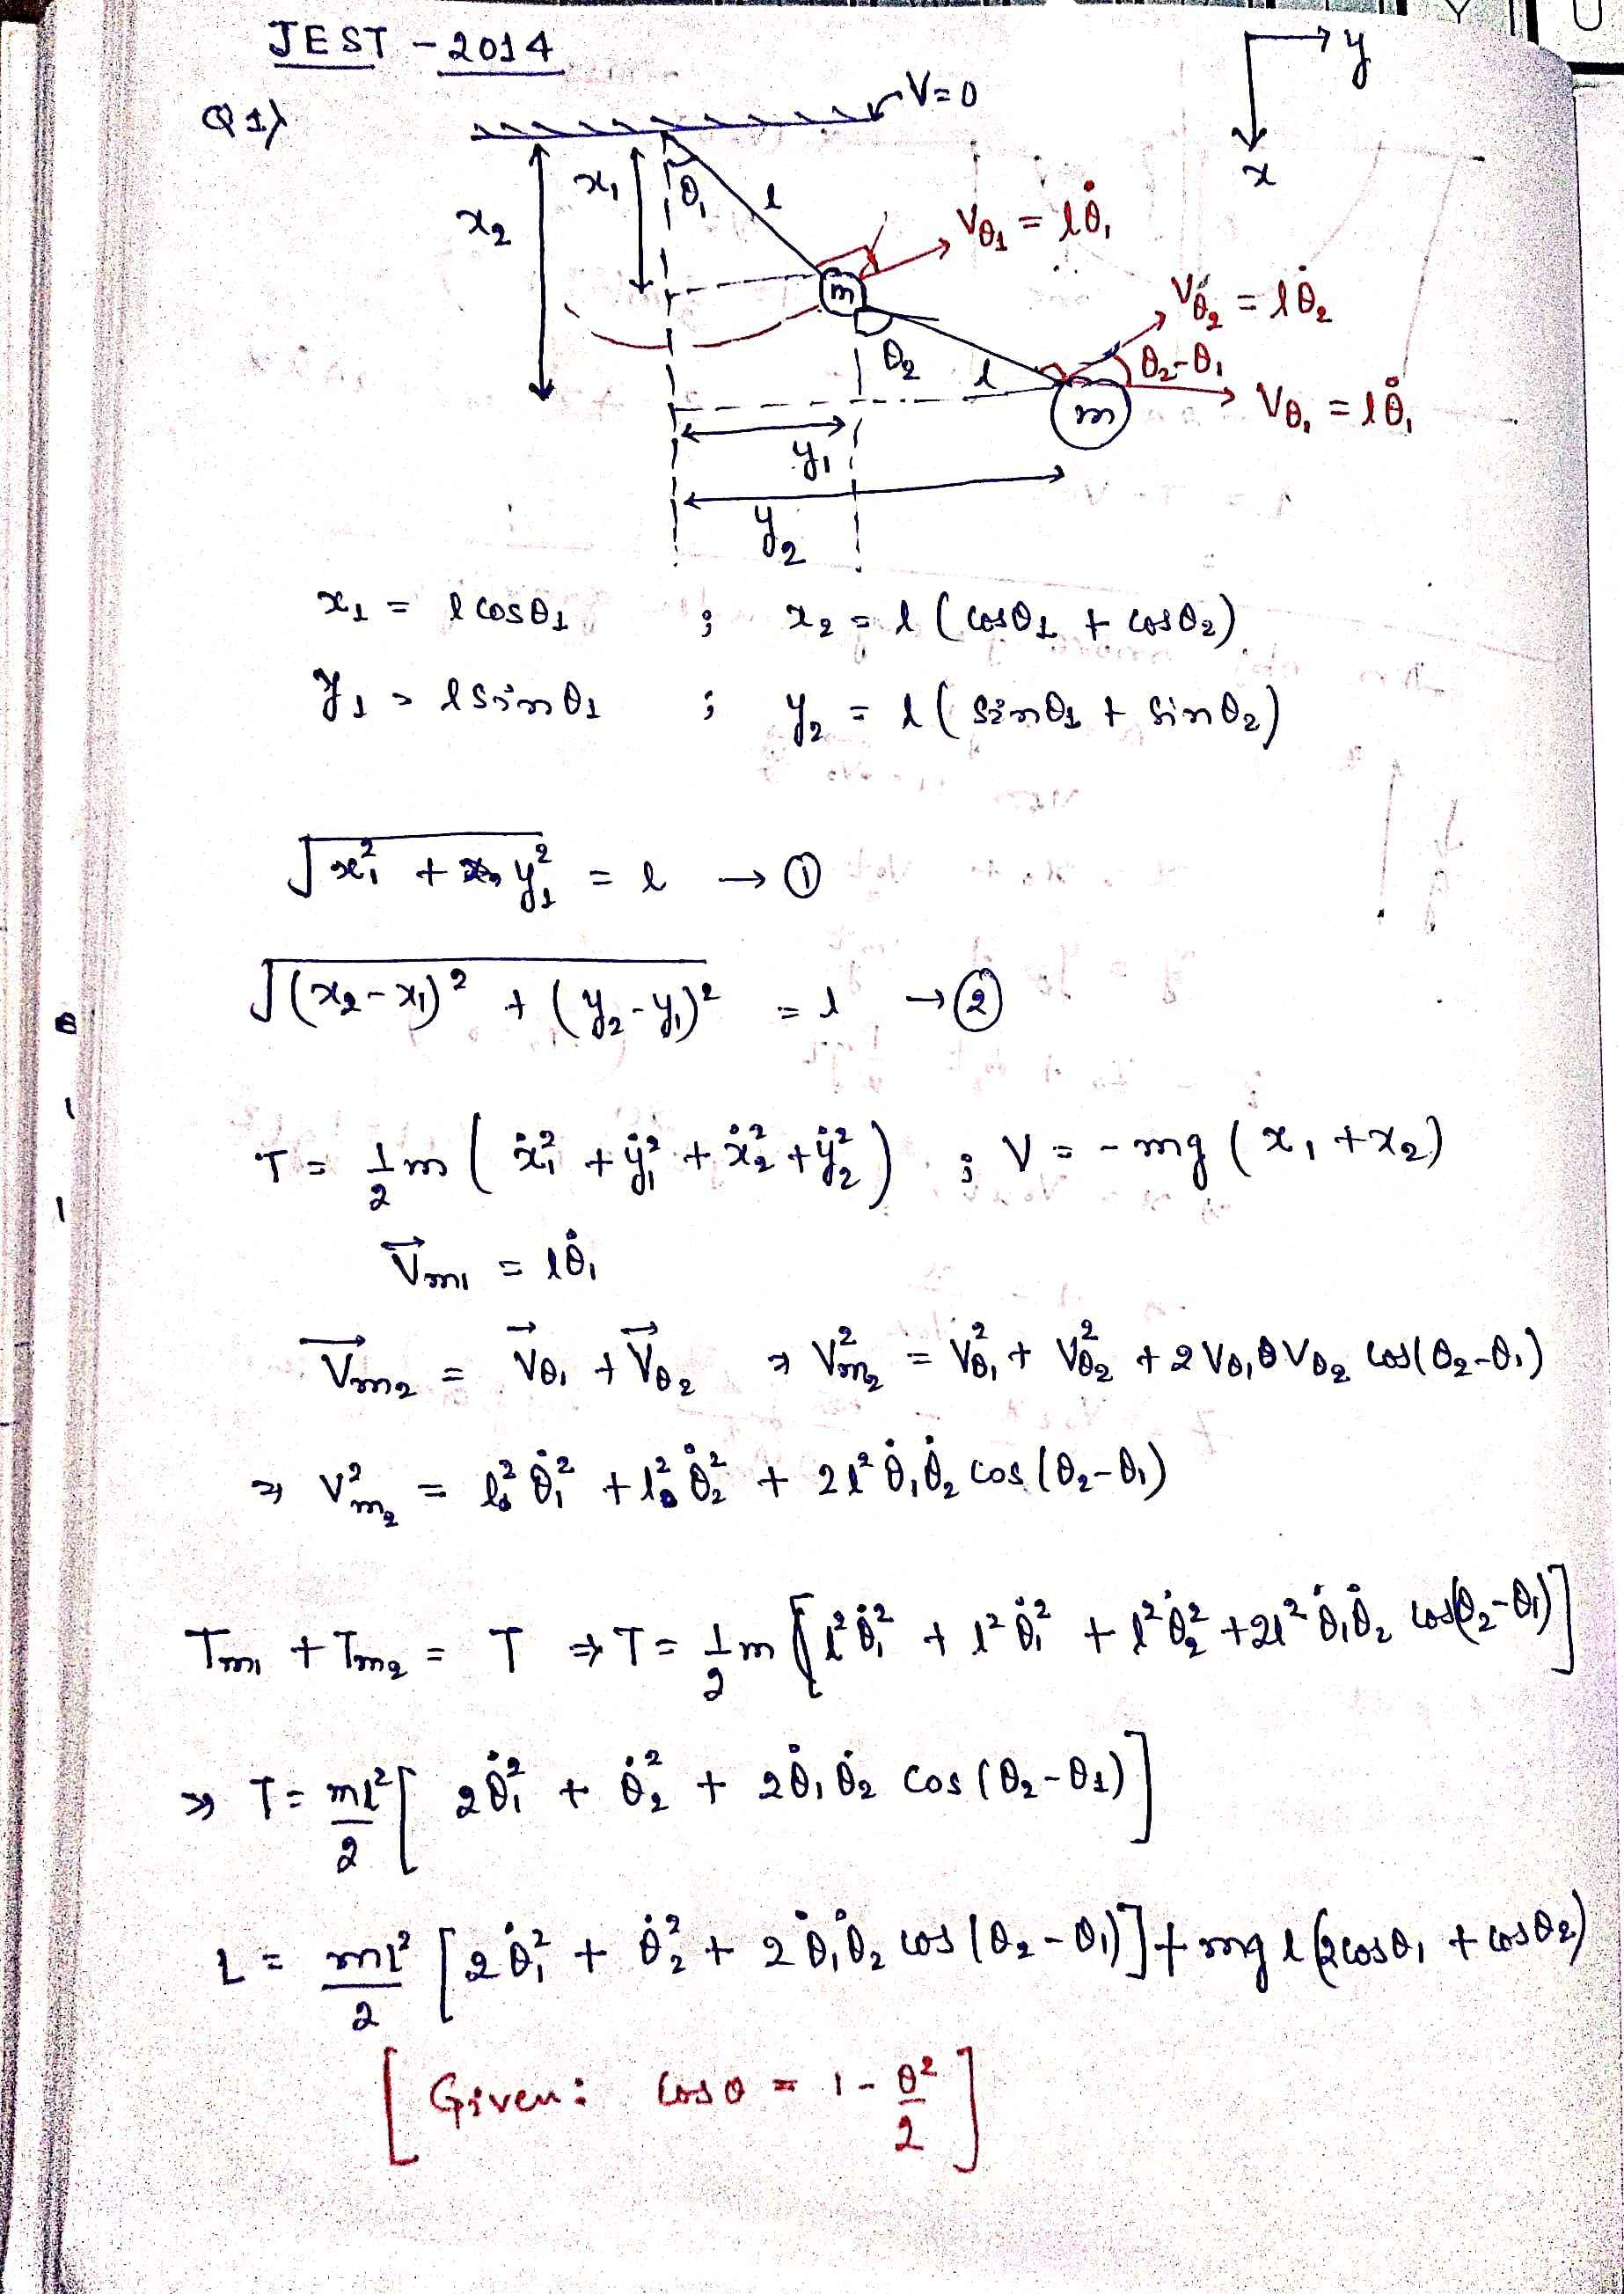 JEST - 2014
Q1)
V=0
y
x
x₂
x₁
θ₁
l
m
V_θ₁ = lθ̇₁
V_θ₂ = lθ̇₂
θ₂-θ₁
V_θ₁ = lθ̇₁
θ₂
l
m
y₁
y₂
x₁ = l cosθ₁ ; x₂ = l (cosθ₁ + cosθ₂)
y₁ = l sinθ₁ ; y₂ = l ( sinθ₁ + sinθ₂)
√(x₁² + y₁²) = l → ①
√((x₂-x₁)² + (y₂-y₁)²) = l → ②
T = 1/2 m ( ẋ₁² + ẏ₁² + ẋ₂² + ẏ₂² ) ; V = - mg ( x₁ + x₂)
V⃗m₁ = lθ̇₁
V⃗m₂ = V⃗θ₁ + V⃗θ₂ ⇒ V²m₂ = V²θ₁ + V²θ₂ + 2 Vθ₁ Vθ₂ cos(θ₂-θ₁)
⇒ V²m₂ = l² θ̇₁² + l² θ̇₂² + 2l² θ̇₁θ̇₂ cos (θ₂-θ₁)
Tm₁ + Tm₂ = T ⇒ T = 1/2 m [l²θ̇₁² + l²θ̇₁² + l²θ̇₂² + 2l² θ̇₁θ̇₂ cos(θ₂-θ₁)]
⇒ T = ml²/2 [ 2θ̇₁² + θ̇₂² + 2θ̇₁θ̇₂ cos (θ₂-θ₁)]
L = ml²/2 [2θ̇₁² + θ̇₂² + 2θ̇₁θ̇₂ cos (θ₂-θ₁)] + mg l (2cosθ₁ + cosθ₂)
[ Given: cosθ = 1 - θ²/2 ]